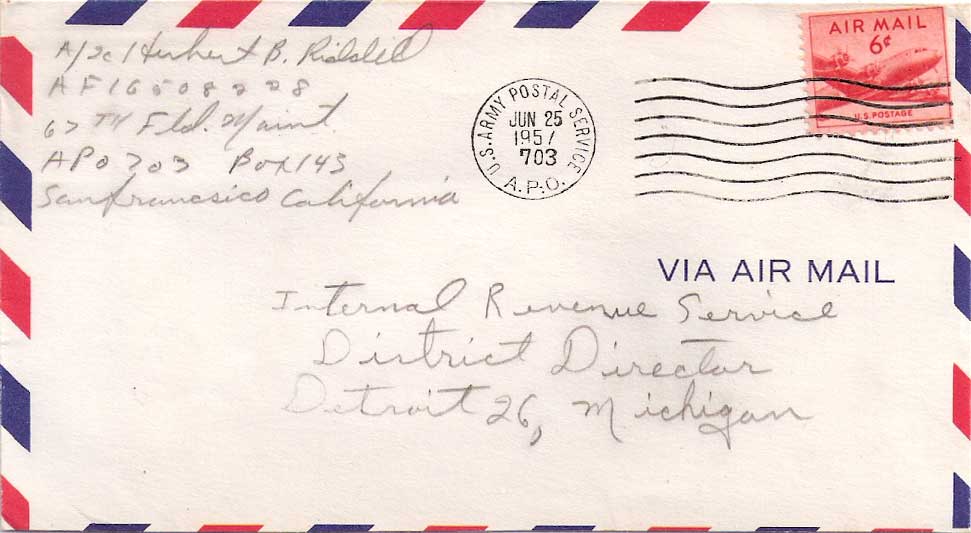 A/2c Herbert B. Riddell
AF16508228
67TH Fld. Maint.
APO 703 Box 143
San Francsico California
U.S. ARMY POSTAL SERVICE
JUN 25
1957
703
A.P.O.
AIR MAIL
6¢
U.S. POSTAGE
VIA AIR MAIL
Internal Revenue Service
District Director
Detroit 26, Michigan